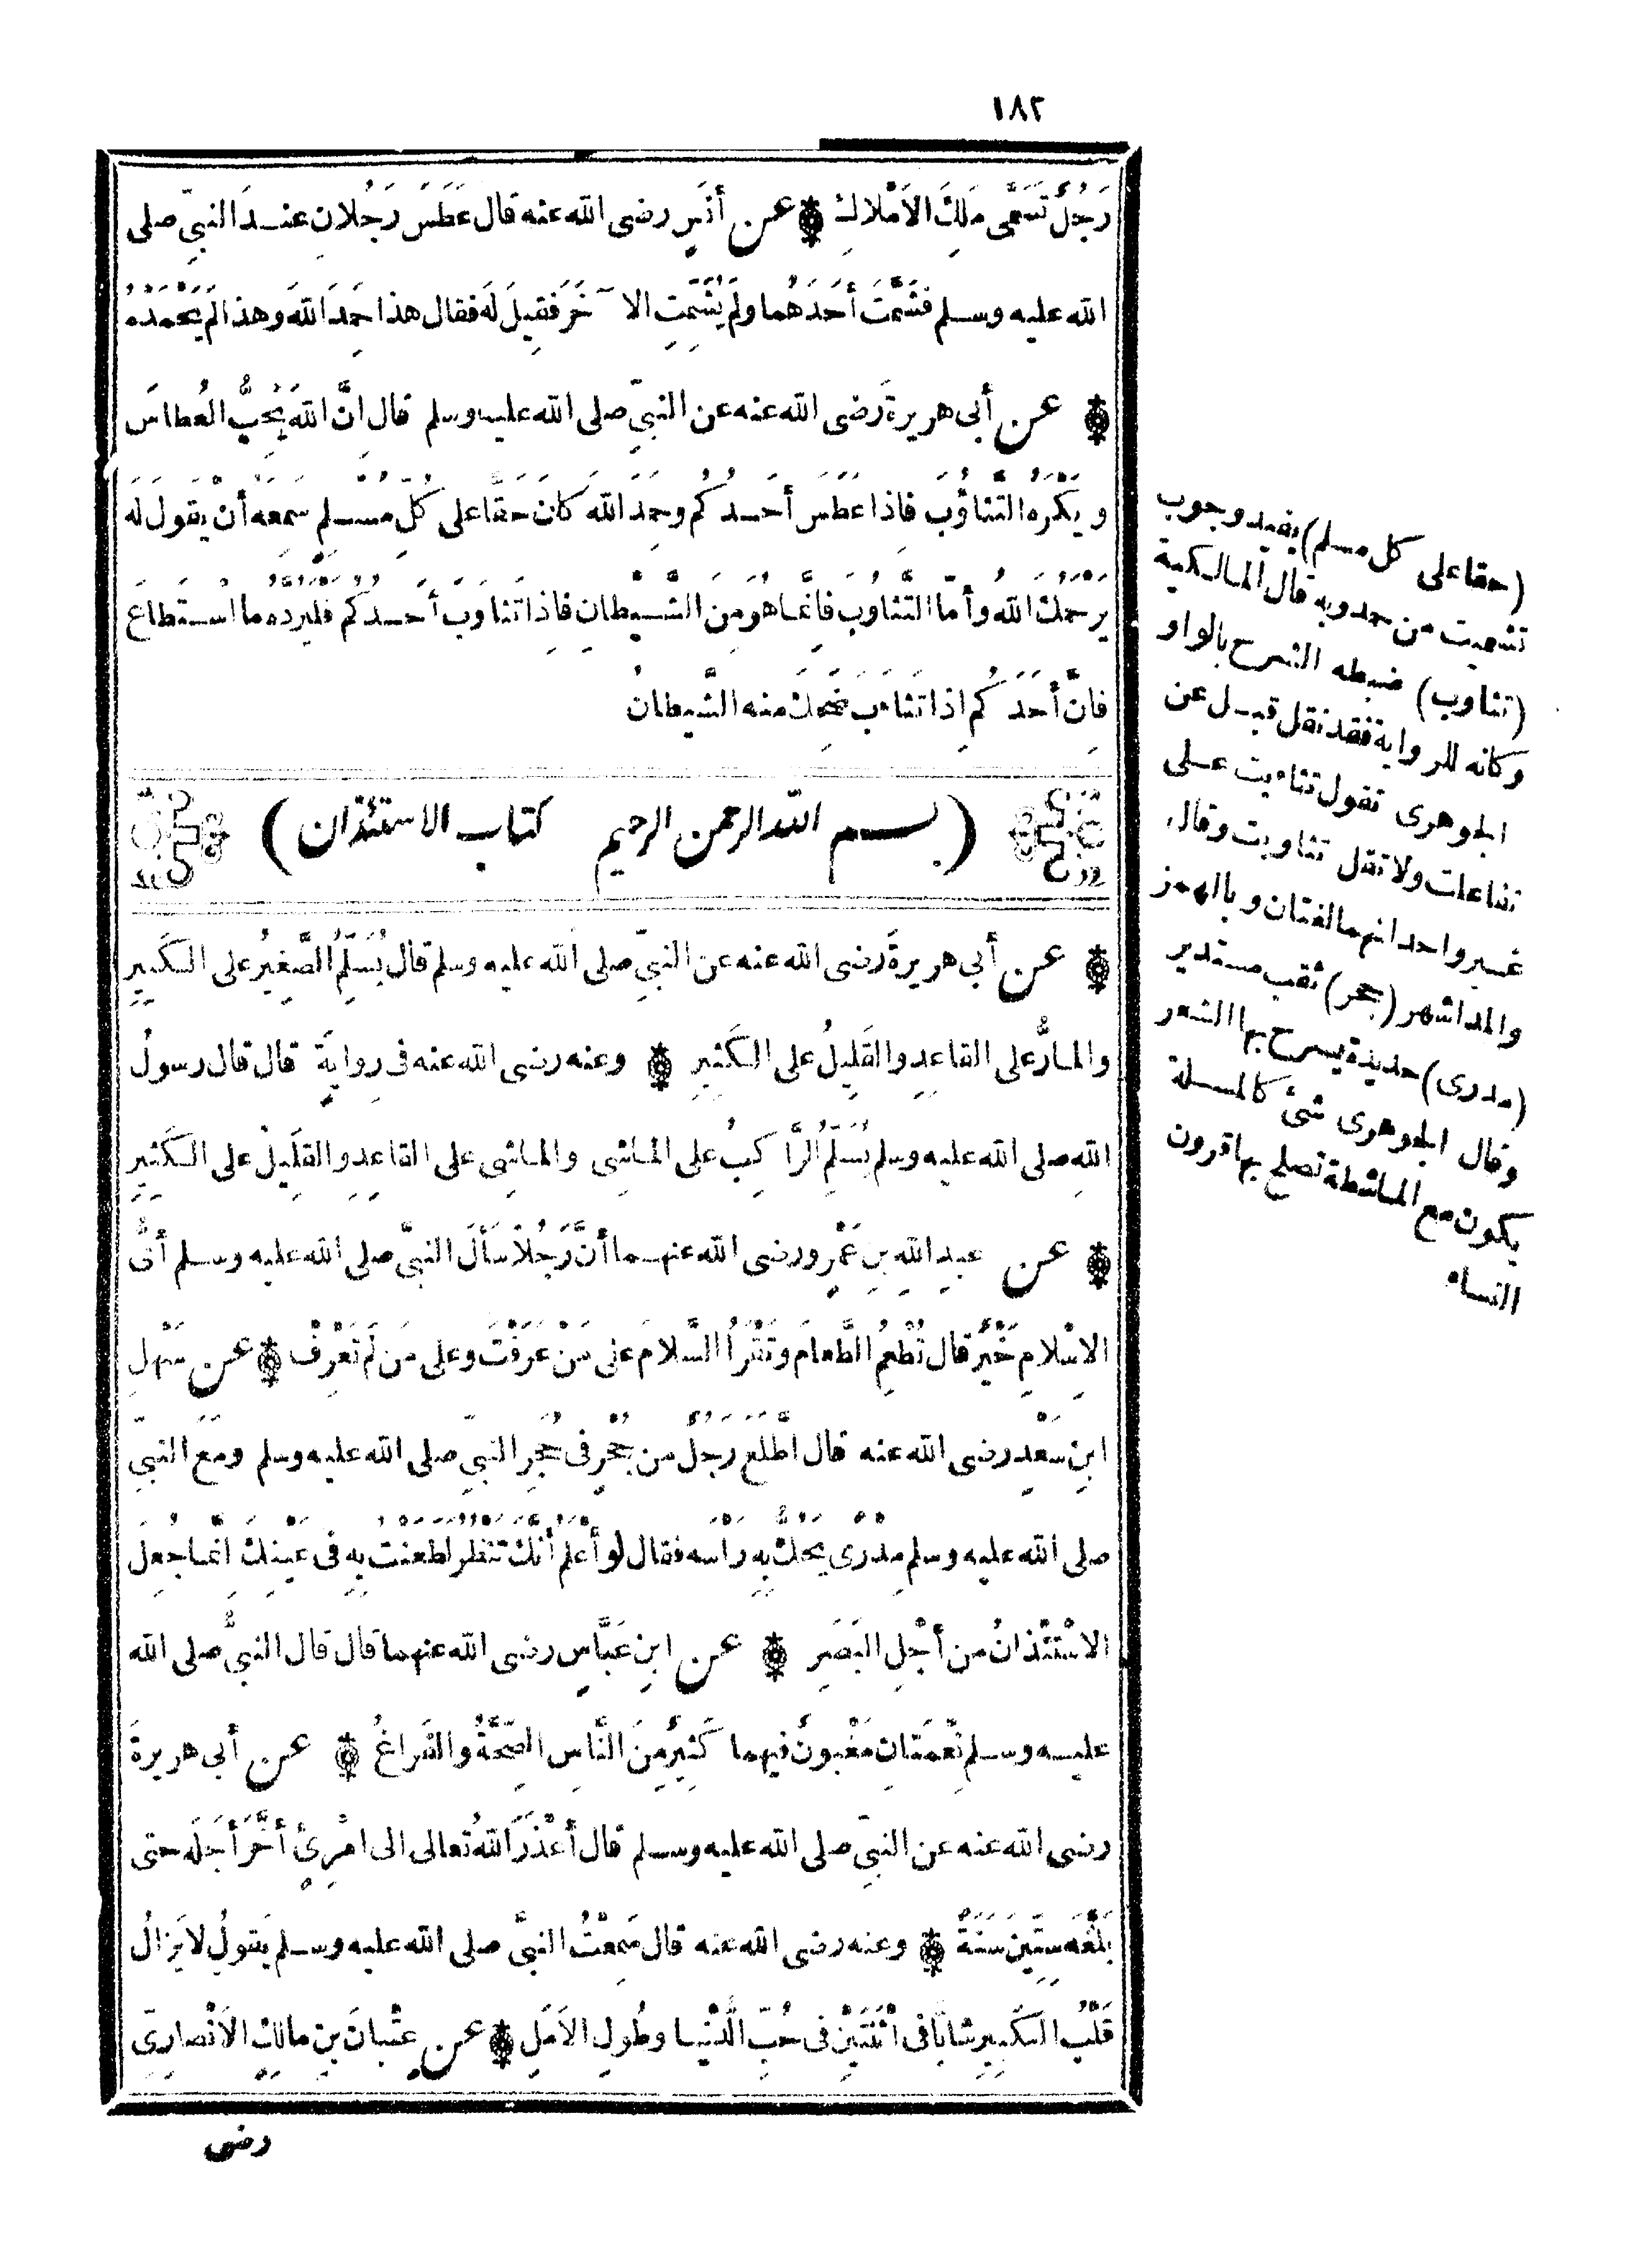 ١٨٢
رَجُلٌ تَسَمَّى مَلِكَ الاَمْلاكِ عن أنَسٍ رضى الله عنه قال عَطَسَ رَجُلانِ عنـدَ النبىّ صلى
الله عليه وسلم فشَمَّتَ أحَدَهُما ولم يُشَمِّتِ الآخَرَ فقِيلَ لَه فقال هذا حَمِدَ اللهَ وهذا لم يَحْمَدْهُ
عن أبى هريرةَ رضى الله عنه عن النبىِّ صلى الله عليه وسلم قال انَّ اللهَ يُحِبُّ العُطاسَ
ويَكْرَهُ التَّثاؤُبَ فاذا عَطَسَ أحَدُكُم وحَمِدَ اللهَ كانَ حَقًّا على كُلِّ مُسْلِمٍ سَمِعَهُ أنْ يقولَ لَه
يَرْحَمُكَ اللهُ وأمّا التَّثاوُبَ فانَّما هو مِنَ الشَّيْطانِ فاذا تَثاوَبَ أحَدُكُم فَلْيَرُدَّهُ ما اسْتَطاعَ
فانَّ أحَدَكُم اذا تَثاءَبَ ضَحِكَ منه الشَّيطانُ
(بسم الله الرحمن الرحيم كتاب الاستئذان)
عن أبى هريرةَ رضى الله عنه عن النبىِّ صلى الله عليه وسلم قال يُسَلِّمُ الصَّغِيرُ على الكَبِيرِ
والمارُّ على القاعِدِ والقَلِيلُ على الكَثِيرِ وعنه رضى الله عنه فى روايةٍ قال قال رسولُ
اللهِ صلى الله عليه وسلم يُسَلِّمُ الرَّاكِبُ على الماشِى والماشِى على القاعِدِ والقَلِيلُ على الكَثِيرِ
عن عبدِ اللهِ بنِ عَمْرٍو رضى الله عنهما أنَّ رَجُلاً سَألَ النبىَّ صلى الله عليه وسلم أىُّ
الاِسْلامِ خَيْرٌ قال تُطْعِمُ الطَّعامَ وتَقْرَأُ السَّلامَ على مَنْ عَرَفْتَ وعلى مَن لَم تَعْرِفْ عن سَهْلِ
ابنِ سَعْدٍ رضى الله عنه قال اطَّلَعَ رَجُلٌ من جُحْرٍ فى حُجَرِ النبىِّ صلى الله عليه وسلم ومَعَ النبىِّ
صلى الله عليه وسلم مِدْرًى يَحُكُّ بِهِ رَأْسَه فقال لو أعْلَمُ أنَّكَ تَنْظُرُ لَطَعَنْتُ بِهِ فى عَيْنِكَ انَّما جُعِلَ
الاسْتِئْذانُ من أجْلِ البَصَرِ عن ابنِ عَبَّاسٍ رضى الله عنهما قال قال النبىُّ صلى الله
عليه وسلم نِعْمَتانِ مَغْبونٌ فيهما كَثِيرٌ مِنَ النَّاسِ الصِّحَّةُ والفَراغُ عن أبى هريرةَ
رضى الله عنه عن النبىّ صلى الله عليه وسلم قال أعْذَرَ اللهُ تعالى الى امْرِئٍ أخَّرَ أجَلَه حتى
بَلَّغَه سِتِّينَ سَنَةً وعنه رضى الله عنه قال سَمِعْتُ النبىَّ صلى الله عليه وسلم يَقولُ لا يَزالُ
قَلْبُ الكَبِيرِ شابًّا فى اثْنَتَيْنِ فى حُبِّ الدُّنْيا وطُولِ الاَمَلِ عن عِتْبانَ بنِ مالِكٍ الاَنْصارِىِّ
رضى
(حقا على كل مسلم) يفيد وجوب
تشميت من حمد وبه قال المالكية
(تثاوب) ضبطه الشرح بالواو
وكانه للرواية فقد نقل قبل عن
الجوهرى تقول تثاءبت على
تفاعلت ولا تقل تثاوبت وقال
غير واحد انهما لغتان وبالهمز
والمد اشهر (جحر) ثقب مستدير
(مدرى) حديدة يسرح بها الشعر
وقال الجوهرى شئ كالمسلة
يكون مع الماشطة تصلح بها قرون
النساء